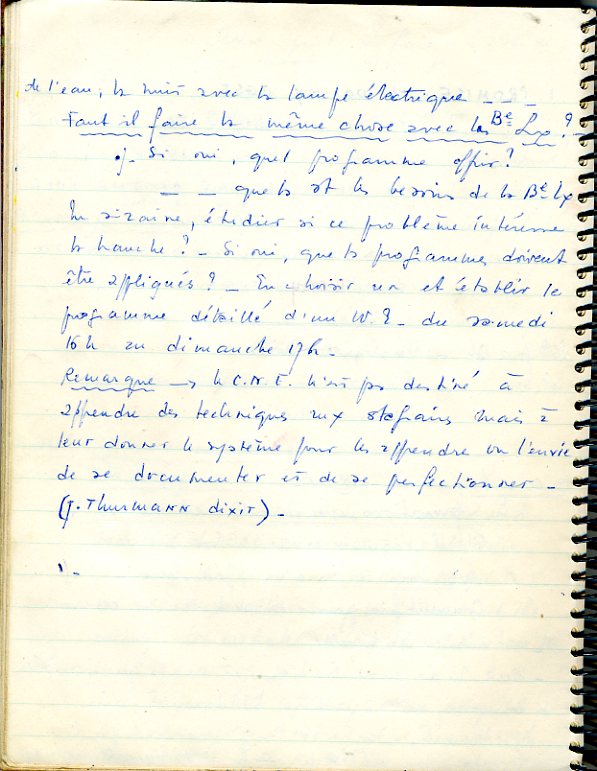 de l'eau, la nuit avec la lampe électrique _ _ _
Faut il faire la même chose avec les Be Lx ? _
Si oui, quel programme offrir ?
_ _ quels st les besoins de la Be Lx
En sizaine, étudier si ce problème intéresse
la branche ? _ Si oui, quels programmes doivent
être appliqués ? _ En choisir un et établir le
programme détaillé d'un W.E. du samedi
16h au dimanche 17h _
Remarque → le C.N.E. n'est pas destiné à
apprendre des techniques aux stagiaires mais à
leur donner le système pour les apprendre ou l'envie
de se documenter et de se perfectionner _
(J. THURMANN dixit) _